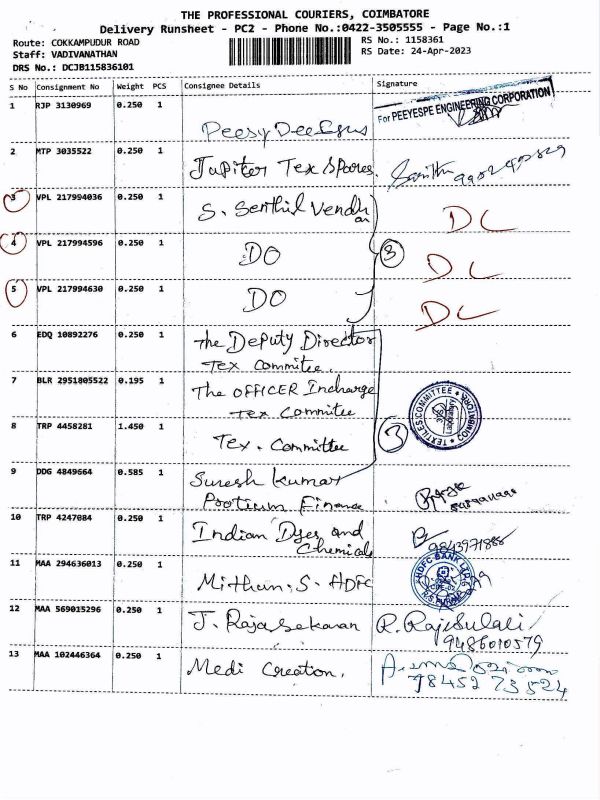 THE PROFESSIONAL COURIERS, COIMBATORE
Delivery Runsheet - PC2 - Phone No.:0422-3505555 - Page No.:1
Route: COKKAMPUDUR ROAD
Staff: VADIVANATHAN
DRS No.: DCJB115836101
RS No.: 1158361
RS Date: 24-Apr-2023
S No Consignment No Weight PCS Consignee Details Signature
1 RJP 3130969 0.250 1
For PEEYESPE ENGINEERING CORPORATION
2 MTP 3035522 0.250 1 Jupiter Tex Spares.
3 VPL 217994036 0.250 1 S. Senthil Vendhan DC
4 VPL 217994596 0.250 1 DO 3 DC
5 VPL 217994630 0.250 1 DO DC
6 EDQ 10892276 0.250 1 The Deputy Director
Tex Committee.
7 BLR 2951805522 0.195 1 The OFFICER Incharge
Tex Commitee
TEXTILES COMMITTEE COIMBATORE
8 TRP 4458281 1.450 1 Tex. Committee 3
9 DDG 4849664 0.585 1 Suresh Kumar
Protium Finance
10 TRP 4247084 0.250 1 Indian Dyes and
Chemicals 9843971888
11 MAA 294636013 0.250 1 Mithun. S. HDFC
HDFC BANK LTD
12 MAA 569015296 0.250 1 J. Rajasekaran
9486010579
13 MAA 102446364 0.250 1 Medi Creation.
98452 73524